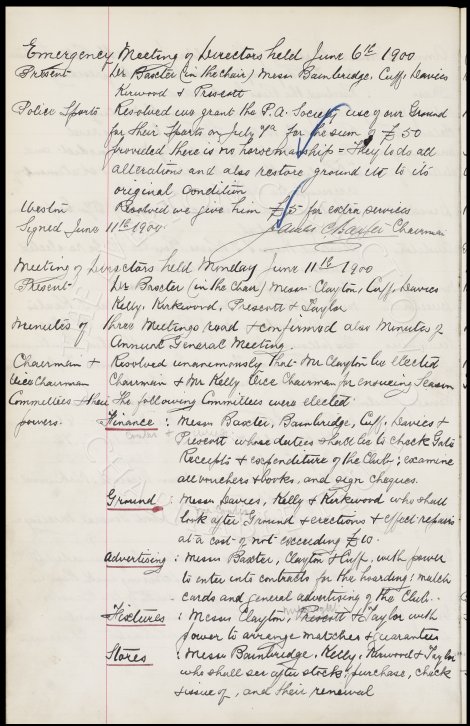 Emergency Meeting of Directors held June 6th 1900
Present Dr Baxter (in the chair) Messrs Bainbridge, Cuff, Davies
Kirwood & Prescott
Police Sports Resolved we grant the P.A. Society use of our Ground
for their Sports on July for the sum of £50
provided there is no horsemanship - They to do all
alterations and also restore ground etc to its
original condition
Weston Resolved we give him £5 for extra services
Signed June 11th 1900 James Clayton Chairman
Meeting of Directors held Monday June 11th 1900
Present Dr Baxter (in the Chair) Messrs Clayton, Cuff, Davies
Kelly, Kirkwood, Prescott & Taylor
Minutes of three Meetings read & confirmed also Minutes of
Annual General Meeting.
Chairman & Resolved unanimously that Mr Clayton be elected
Vice Chairman Chairman & Mr Kelly Vice Chairman for ensuing Season
Committees & their The following Committees were elected
powers. Finance : Messrs Baxter, Bainbridge, Cuff, Davies &
Prescott whose duties shall be to check Gate
Receipts & expenditure of the Club; examine
all vouchers & books, and sign cheques.
Ground : Messrs Davies, Kelly & Kirkwood who shall
look after Ground & erections & effect repairs
at a cost of not exceeding £10.
Advertising : Messrs Baxter, Clayton & Cuff, with power
to enter into contracts for the hoarding: match
cards and general advertising of the Club.
Fixtures : Messrs Clayton, Prescott & Taylor with
power to arrange matches & guarantees
Stores : Messrs Bainbridge, Kelly, Kirwood & Taylor
who shall see after stock, purchase, check
& issue of, and their renewal